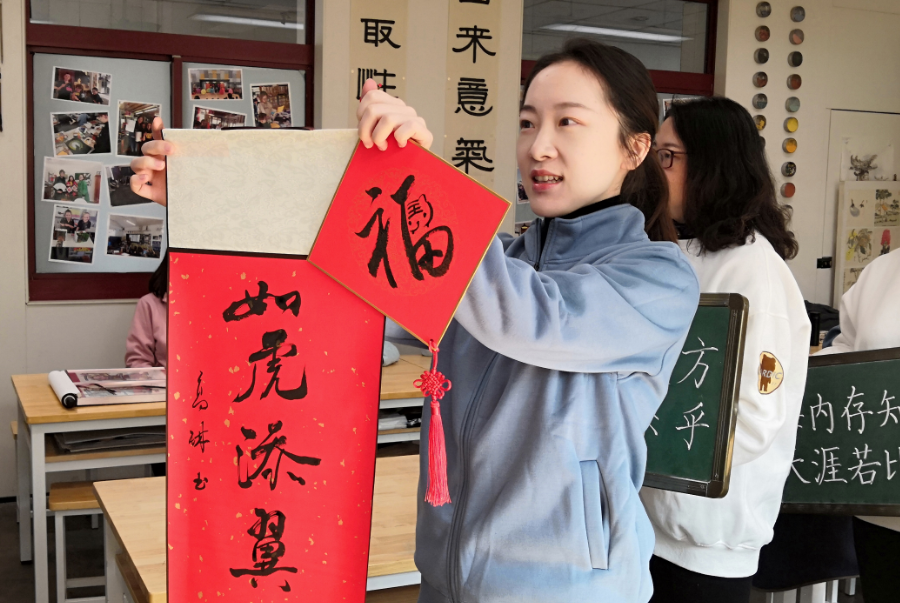 取
来意氣
福
如虎添翼
高琳书
方
乎
内存知
天涯若比